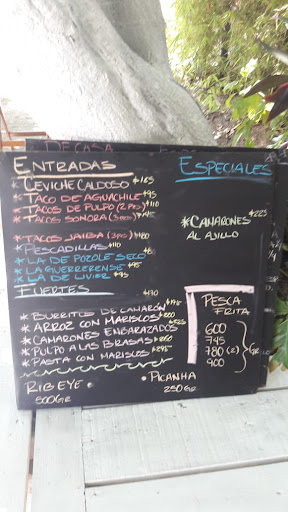 DE CASA
ENTRADAS
* CEVICHE CALDOSO $165
* TACO DE AGUACHILE $95
* TACOS DE PULPO (2 PZS) $110
* TACOS SONORA (3 PZS)
* TACOS JAIBA (3 PZS) $180
* PESCADILLAS $110
* LA DE POZOLE SECO
* LA GUERRERENSE $95
* LA DE LIVIER $95
FUERTES $170
* BURRITOS DE CAMARÓN
* ARROZ CON MARISCOS
* CAMARONES ENBARAZADOS
* PULPO A LAS BRASAS
* PASTA CON MARISCOS
RIB EYE •
500GR
• PICANHA
250 GR
ESPECIALES
* CAMARONES $225
AL AJILLO
PESCA
FRITA
600
745
780 (2) GR
900